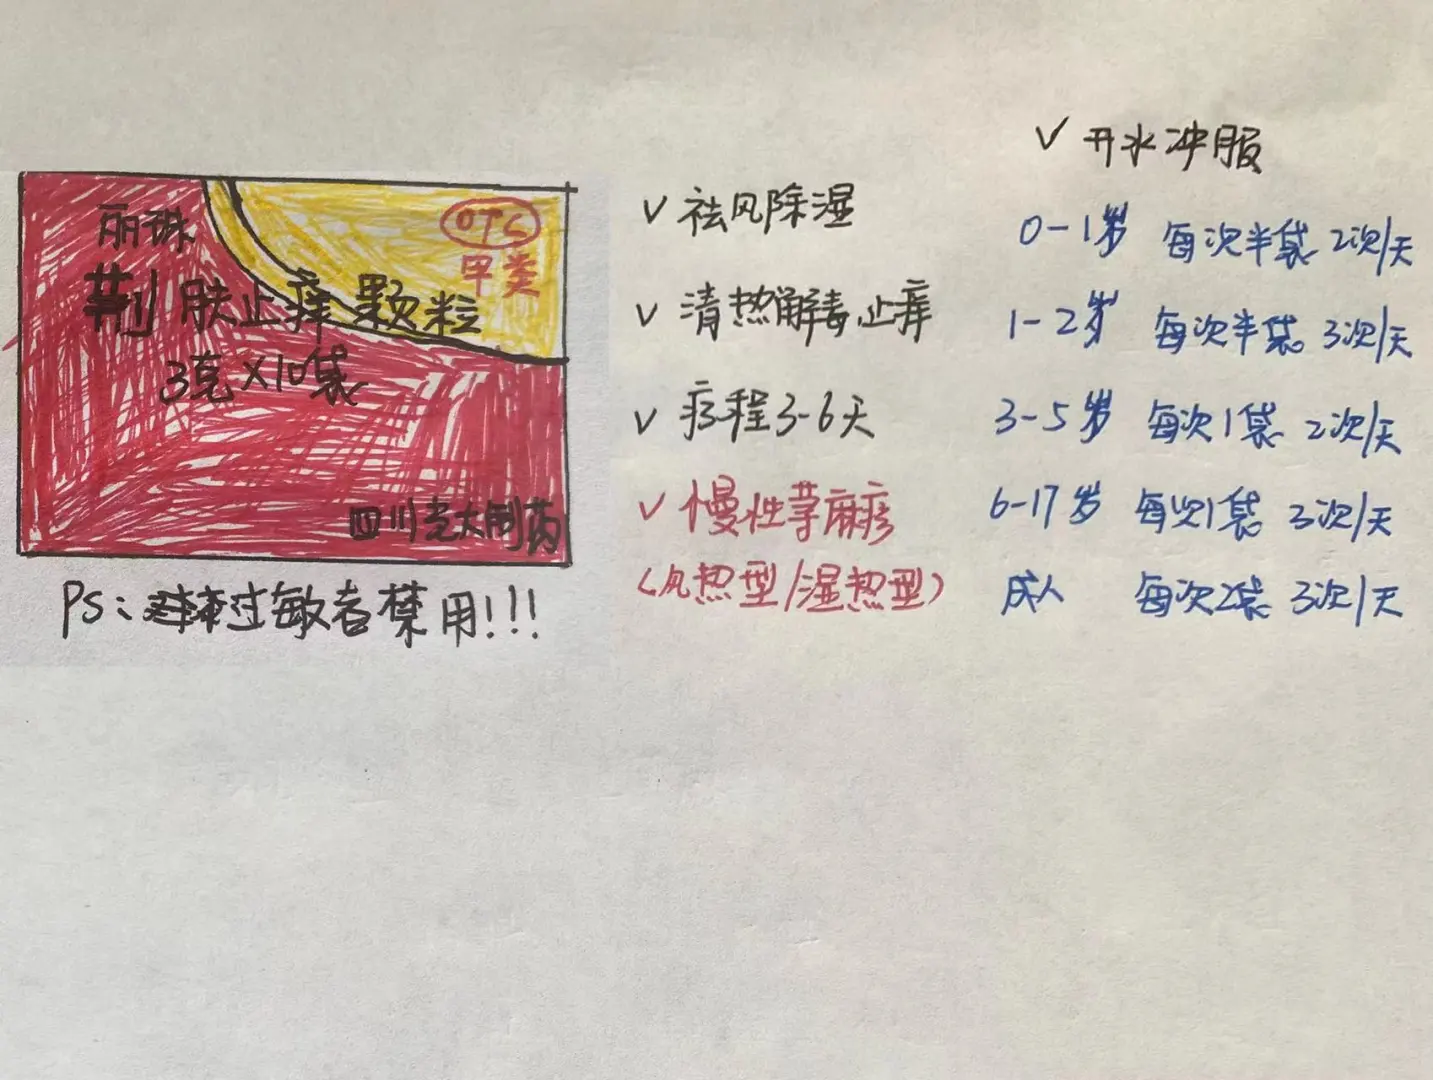 丽珠
OTC
甲类
荆肤止痒颗粒
3克×10袋
四川光大制药
PS:过敏者禁用!!!
√ 祛风除湿
√ 清热解毒止痒
√ 疗程3-6天
√ 慢性荨麻疹
(风热型/湿热型)
√ 开水冲服
0-1岁 每次半袋 2次/天
1-2岁 每次半袋 3次/天
3-5岁 每次1袋 2次/天
6-17岁 每次1袋 3次/天
成人 每次2袋 3次/天